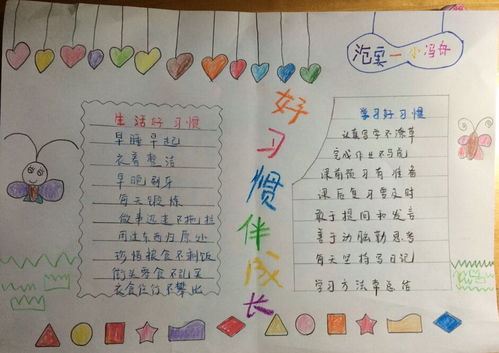 沱实一小冯舟
好习惯伴成长
生活好习惯
早睡早起
衣着整洁
早跑刷牙
每天锻炼
做事迅速不拖拉
用过东西归原处
珍惜粮食不剩饭
街头零食不乱买
衣食住行不攀比
学习好习惯
认真写字不潦草
完成作业不马虎
课前预习有准备
课后复习要及时
敢于提问和发言
善于动脑勤思考
每天坚持写日记
学习方法常总结